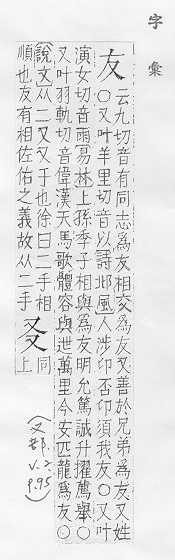 字彙
友 云九切音有同志爲友相交爲友又善於兄弟爲友又姓
○又叶羊里切音以詩邶風人涉卬否卬須我友○又叶
演女切音雨易林上孫季子相與爲友明允篤誠升擢薦舉○
又叶羽軌切音偉漢天馬歌體容與迣萬里今安匹龍爲友○
說文从二又又手也徐曰二手相
順也友有相佐佑之義故从二手
㕛 同上
(又部.
V.2
p.95)